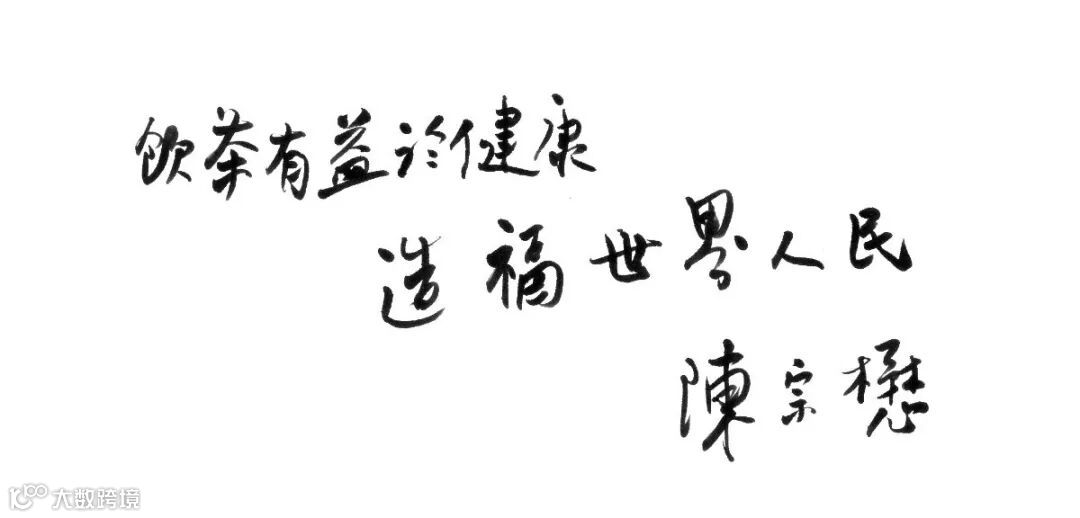 飲茶有益於健康
造福世界人民
陳宗懋
大数跨境